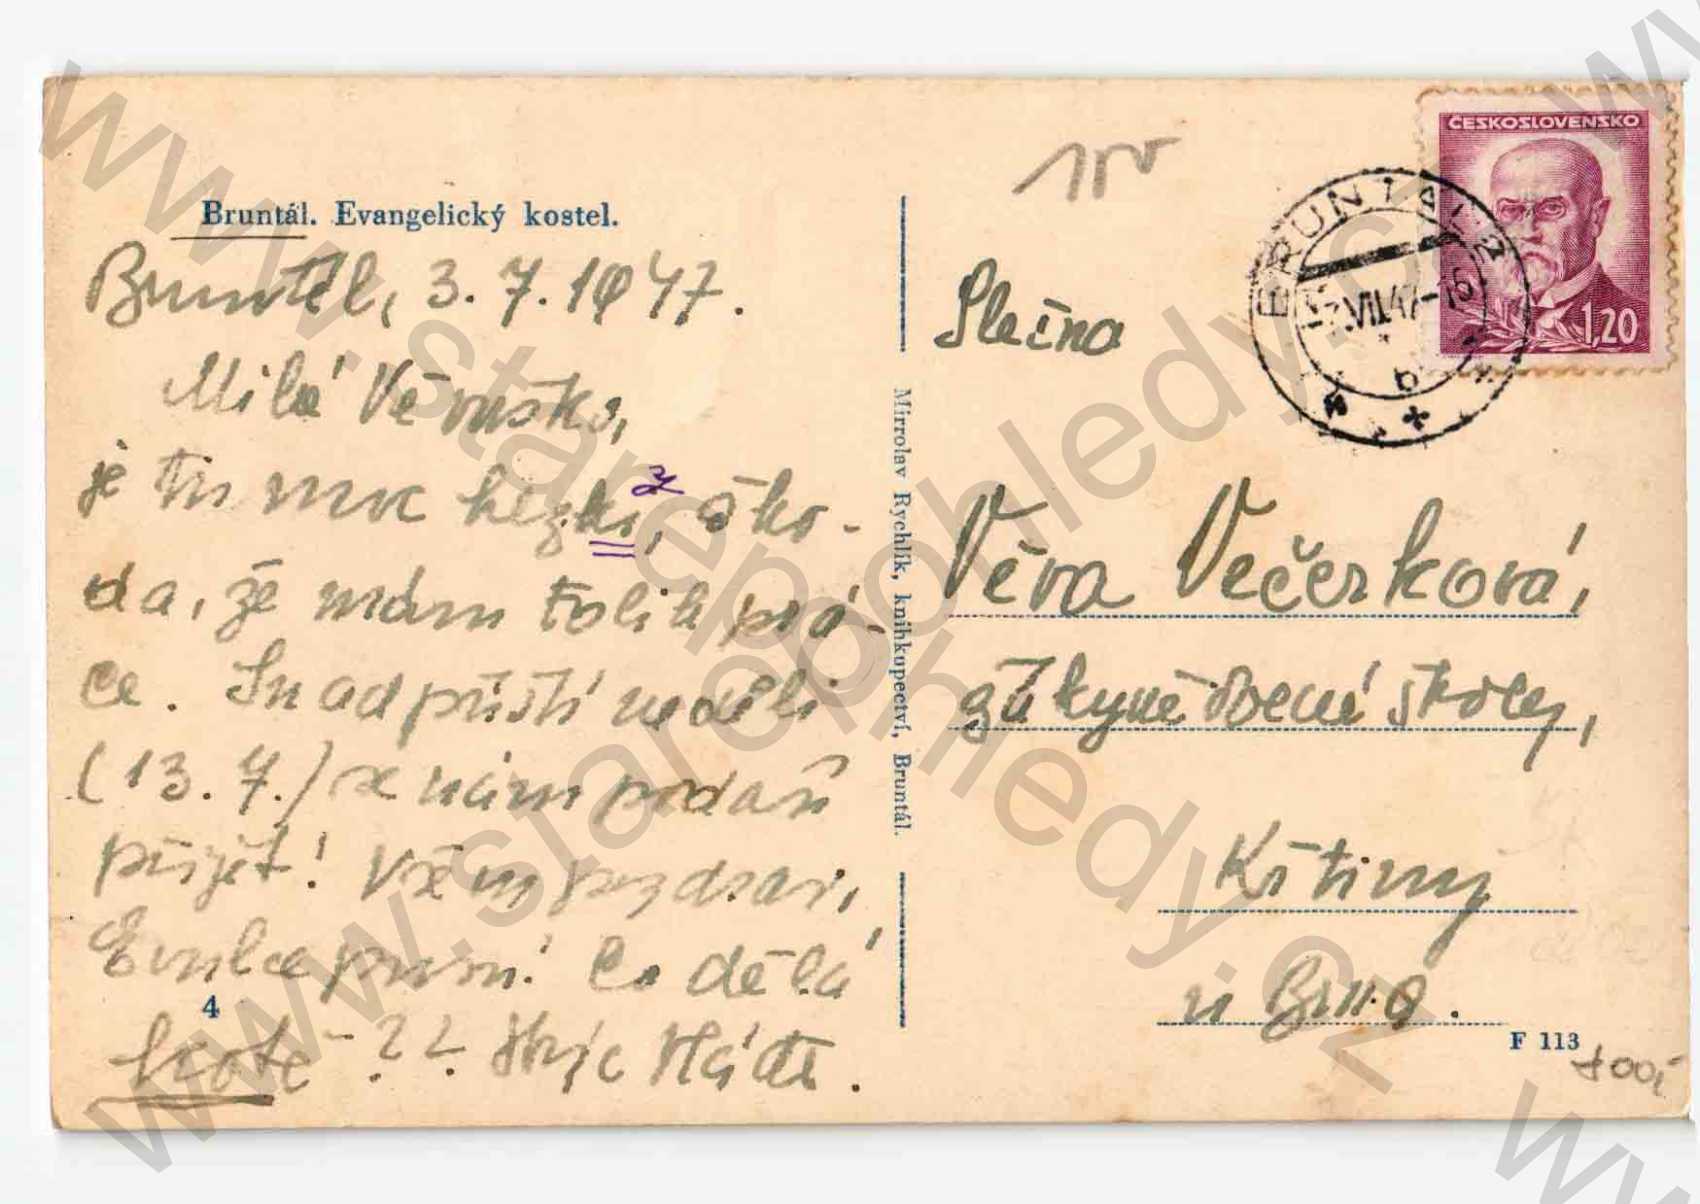 Bruntál. Evangelický kostel.
Bruntál, 3. 7. 1947.
Milá Věruško,
je tu moc hezki, ško-
y
da, že mám tolik prá-
ce. Snad příští neděli
(13. 7.) se nám podaří
přijet! Všem pozdrav,
první! Co dělá
kotě - ?? Strýc
4
Mirroslav Rychlík, knihkupectví, Bruntál.
ČESKOSLOVENSKO
1,20
BRUNTÁL 2
3.VII.47-16
b
Slečna
Věra Večerková,
žákyně obecné školy,
Křtiny
u Brna.
F 113
www.starepohledy.cz
www.starepohledy.cz